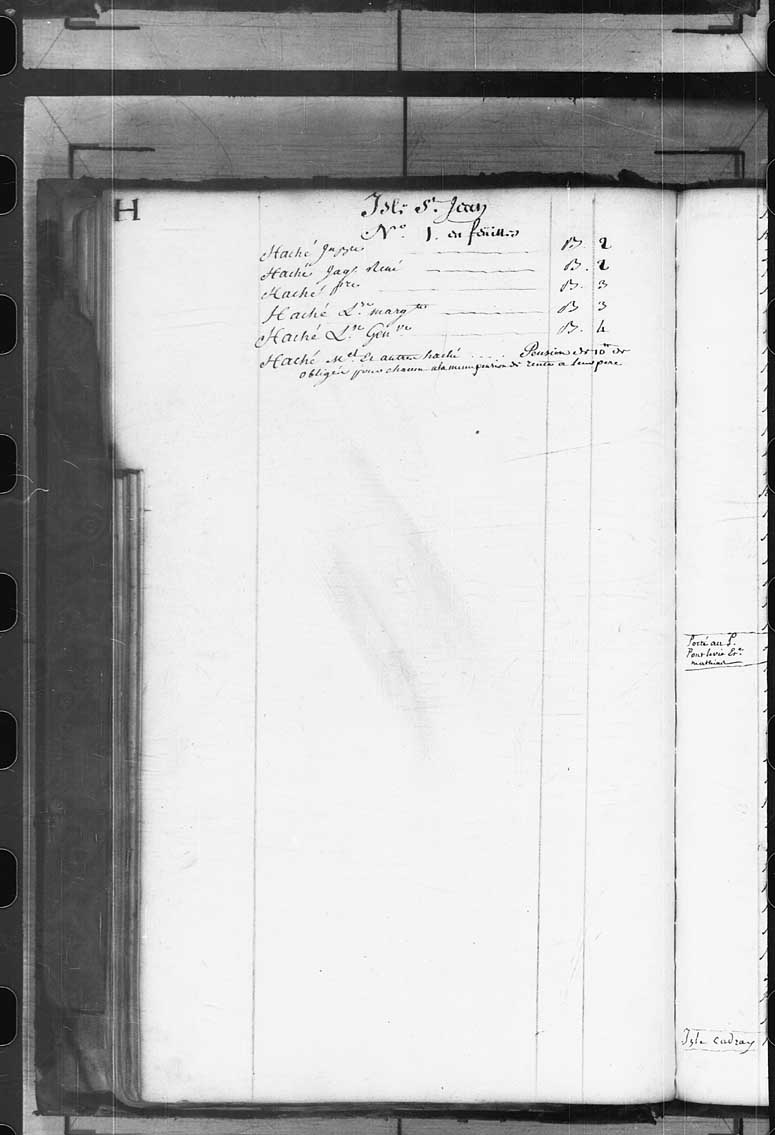 H
Isle St. Jean
No. 1. en feuilles
Haché B. 2
Haché Jaqs René B. 2
Haché frc B. 3
Haché Lse margte B 3
Haché Lse Genve B. 4
Haché Mel Et autres haché .... Pension de 10tt de
obligée pour chacun a la meme pension de rente a leur pere
Porté au P.
Pontlevié Etc
mathieu
Isle cadray